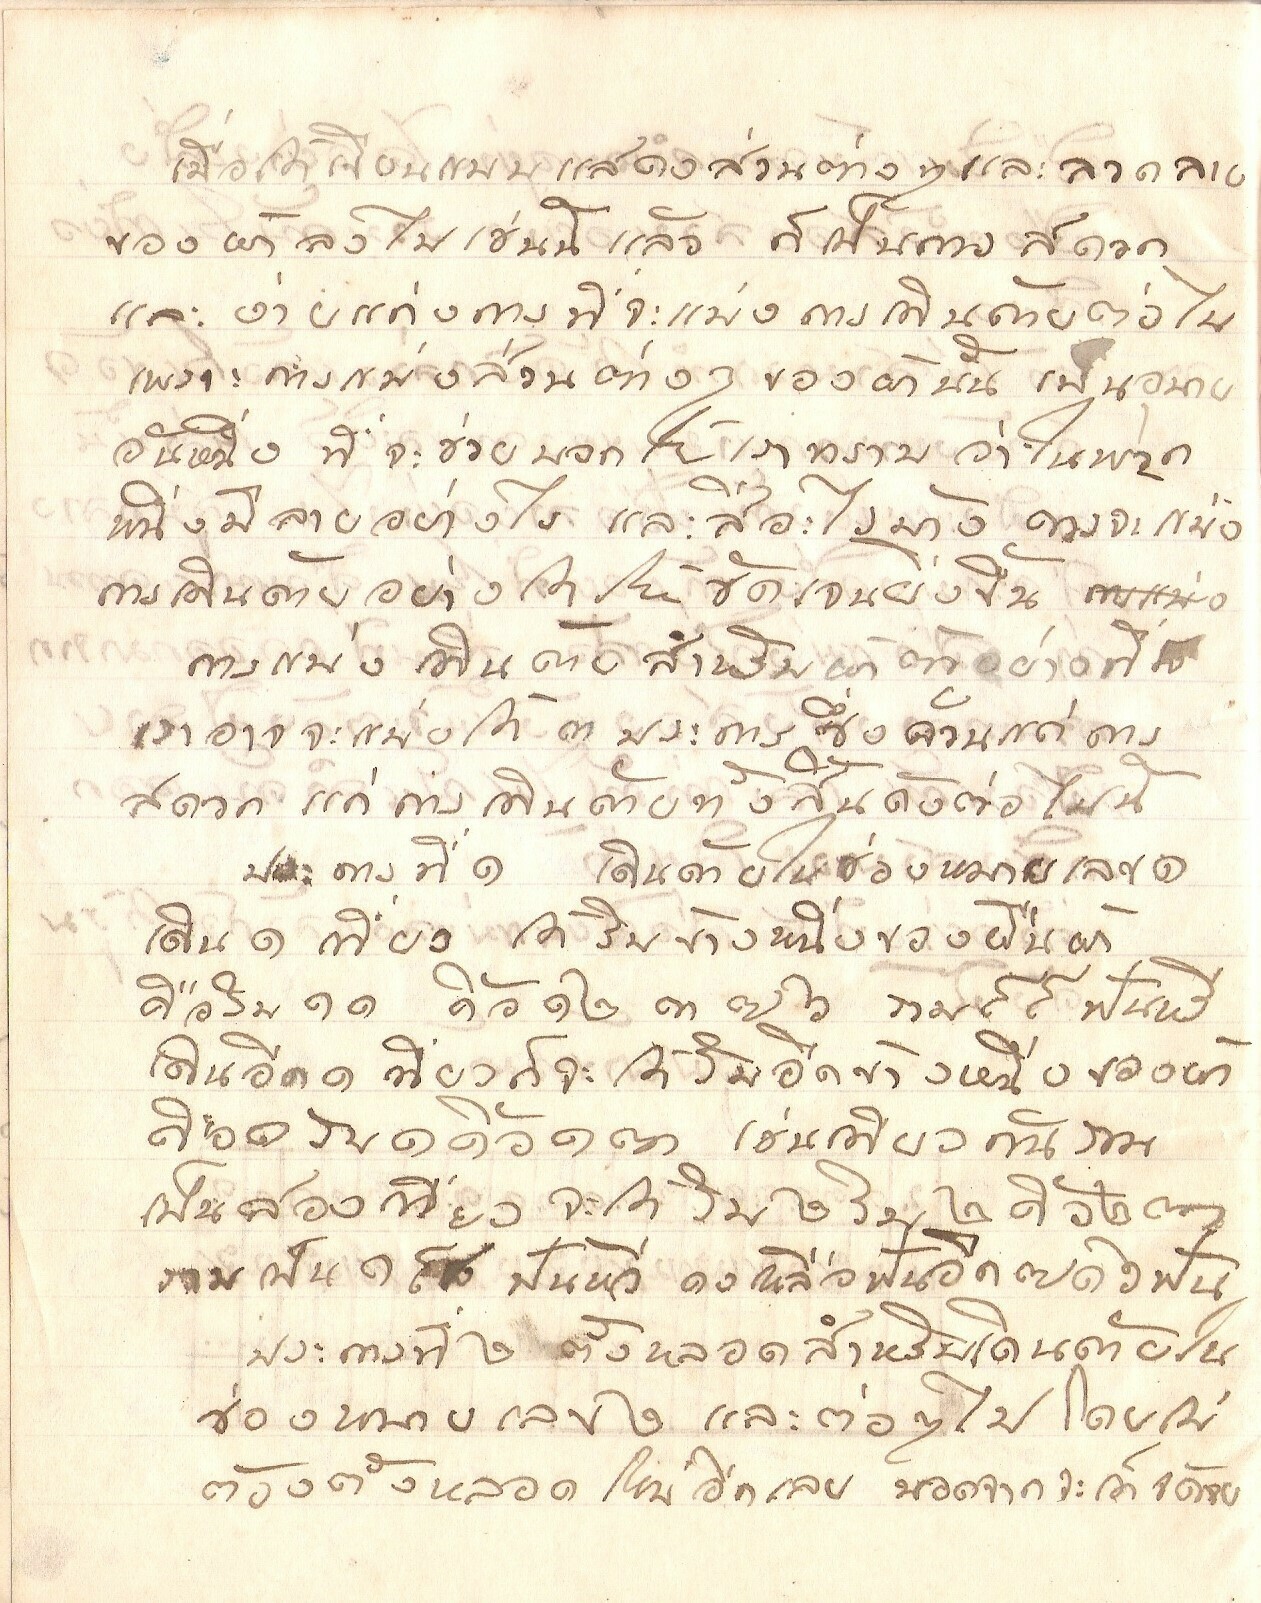 เมื่อได้เขียนแบบแสดงส่วนต่างๆและลวดลาย
ของผ้าลงไปเช่นนี้แล้ว ก็เป็นการสดวก
และง่ายแก่การที่จะแบ่งการเดินด้ายต่อไป
เพราะการแบ่งส่วนต่างๆของผ้านั้น เป็นอุบาย
อันหนึ่ง ที่จะช่วยบอกให้เราทราบว่าในพวก
หนึ่งมีลายอย่างไร และสีอะไรบ้าง ควรจะแบ่ง
การเดินด้ายอย่างใดให้ชัดเจนยิ่งขึ้น
การแบ่งเดินด้ายสำหรับผ้าตัวอย่างที่
เราอาจจะแบ่งได้ ๓ ประการ ซึ่งล้วนแต่การ
สดวกแก่การเดินด้ายทั้งสิ้นดังต่อไปนี้
ประการที่ ๑ เดินด้ายในช่องหมายเลข ๑
เดิน ๑ เที่ยว ได้ริมข้างหนึ่งของผืนผ้า
คือริม ๑๑ คิว ๑๒ ๓ รวม ฟันหวี
เดินอีก ๑ เที่ยวก็จะได้ริมอีกข้างหนึ่งของผ้า
คือ ริม ๑ คิว ๑ เช่นเดียวกัน รวม
เป็นสองเที่ยว จะได้ริม ๒ ริม ๒ คิว
รวมเป็น ๑ ฟันหวี คงเหลือฟันอีก ฟัน
ประการที่ ๒ ตั้งหลอดสำหรับเดินด้ายใน
ช่องหมายเลข ๒ และต่อๆไป โดยไม่
ต้องตั้งหลอดใหม่อีกเลย นอกจากจะ